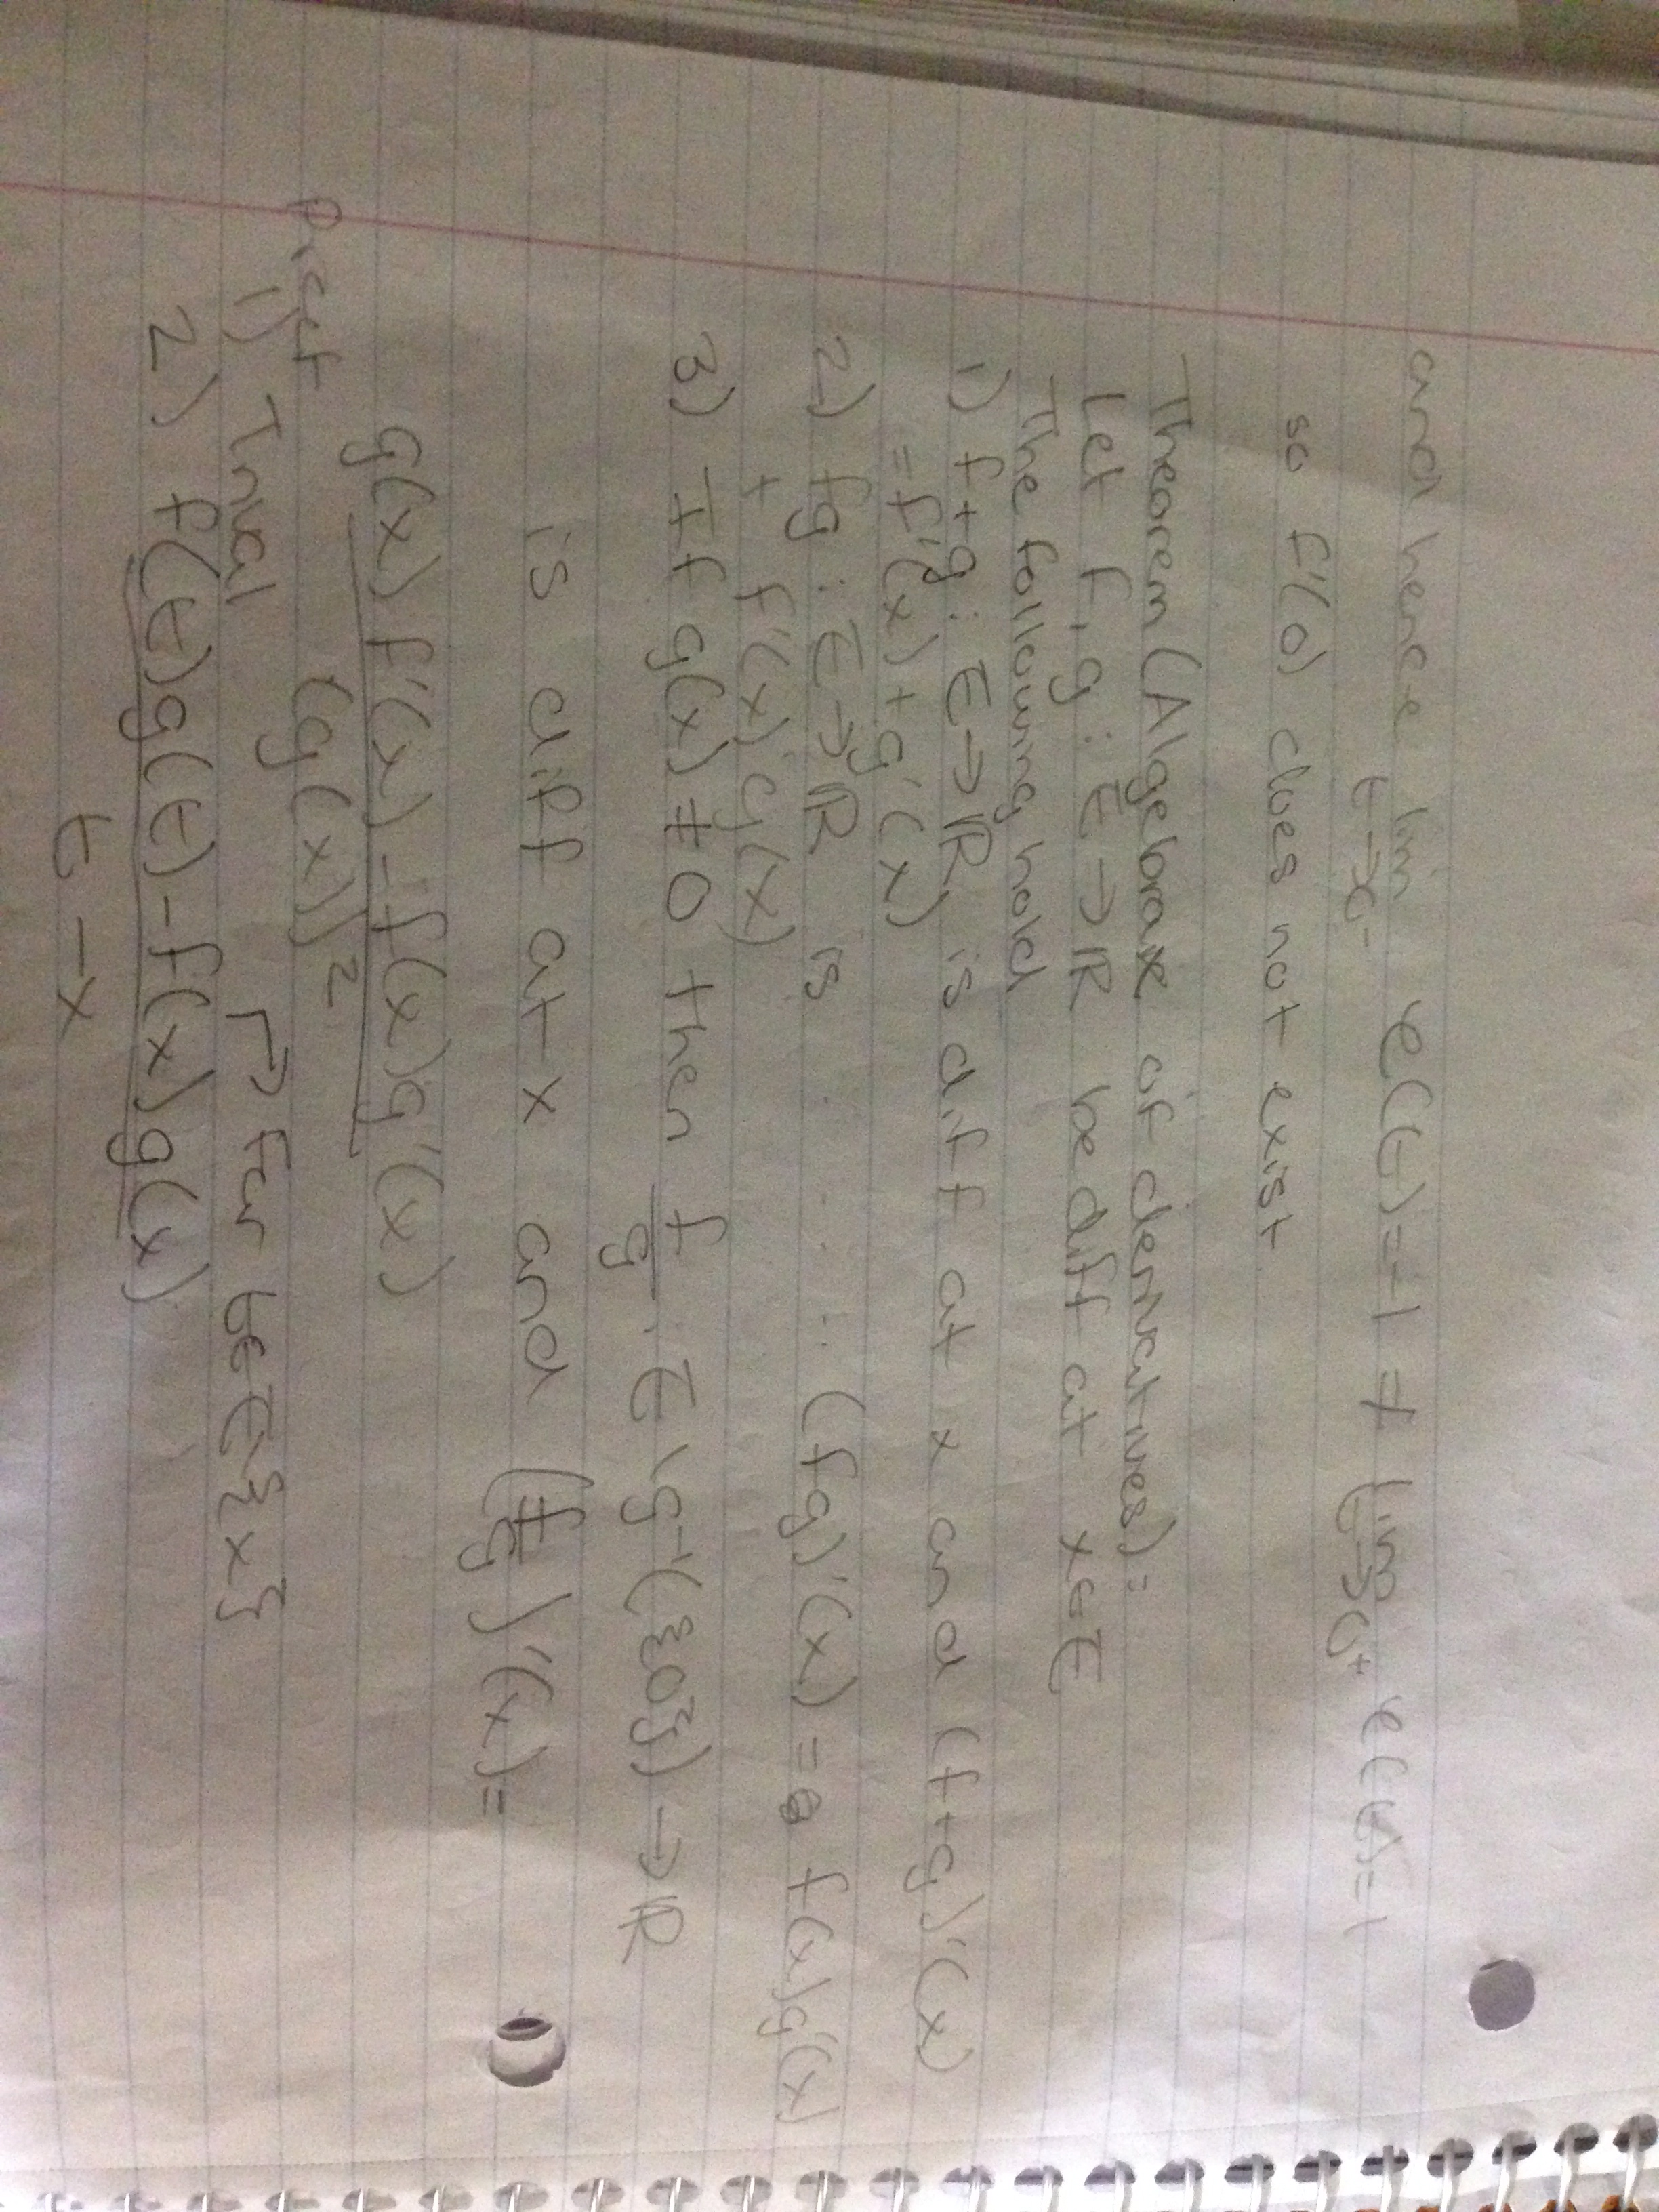 and hence lim φ(t) = -1 ≠ lim φ(t) = 1
t→0- t→0+
so f'(0) does not exist
Theorem (Algebra of derivatives):
Let f, g : E → ℝ be diff at x ∈ E
The following hold
1) f+g : E → ℝ is diff at x and (f+g)'(x)
= f'(x) + g'(x)
2) fg : E → ℝ is . . . . . (fg)'(x) = f(x)g'(x)
+ f'(x)g(x)
3) If g(x) ≠ 0 then f/g : E \ g⁻¹({0}) → ℝ
is diff at x and (f/g)'(x) =
g(x) f'(x) - f(x)g'(x)
(g(x))²
Proof
1) Trival ↱ For t ∈ E\{x}
2) f(t)g(t) - f(x)g(x)
t - x